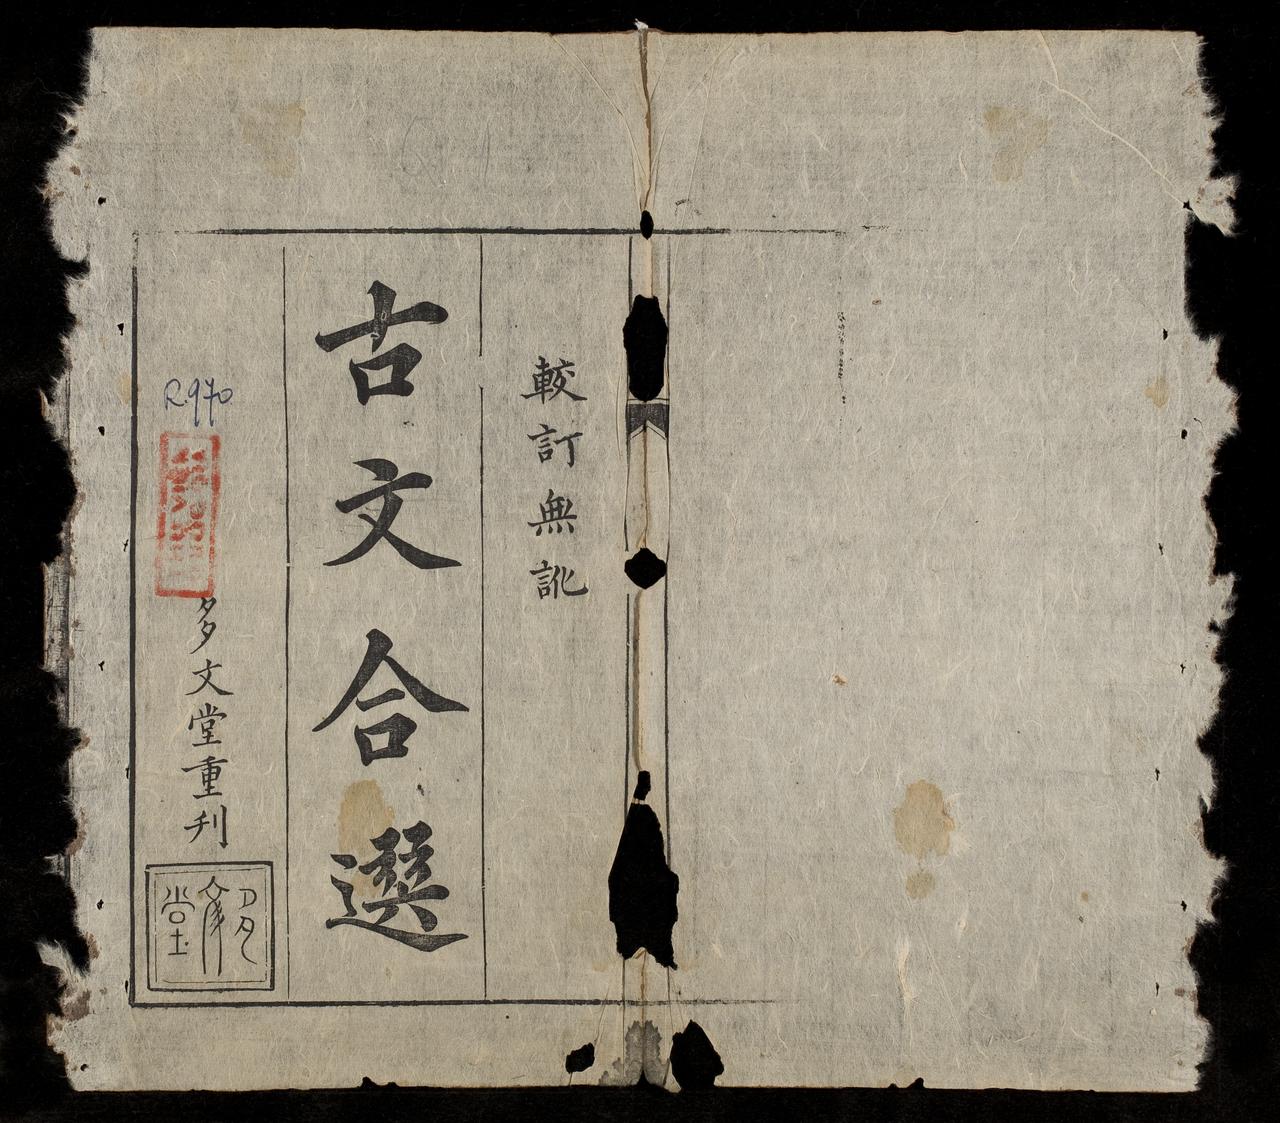 較訂無訛
古文合選
R.970
多文堂重刊
多文堂